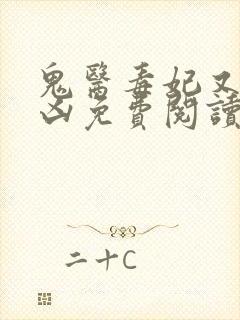 鬼醫毒妃又
凶免費閱讀
二十C